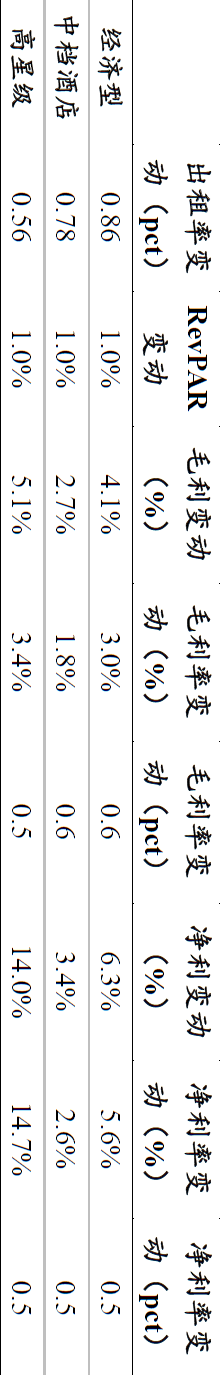 出租率变动（pct） RevPAR变动 毛利变动（%） 毛利率变动（%） 毛利率变动（pct） 净利变动（%） 净利率变动（%） 净利率变动（pct）
经济型 0.86 1.0% 4.1% 3.0% 0.6 6.3% 5.6% 0.5
中档酒店 0.78 1.0% 2.7% 1.8% 0.6 3.4% 2.6% 0.5
高星级 0.56 1.0% 5.1% 3.4% 0.5 14.0% 14.7% 0.5